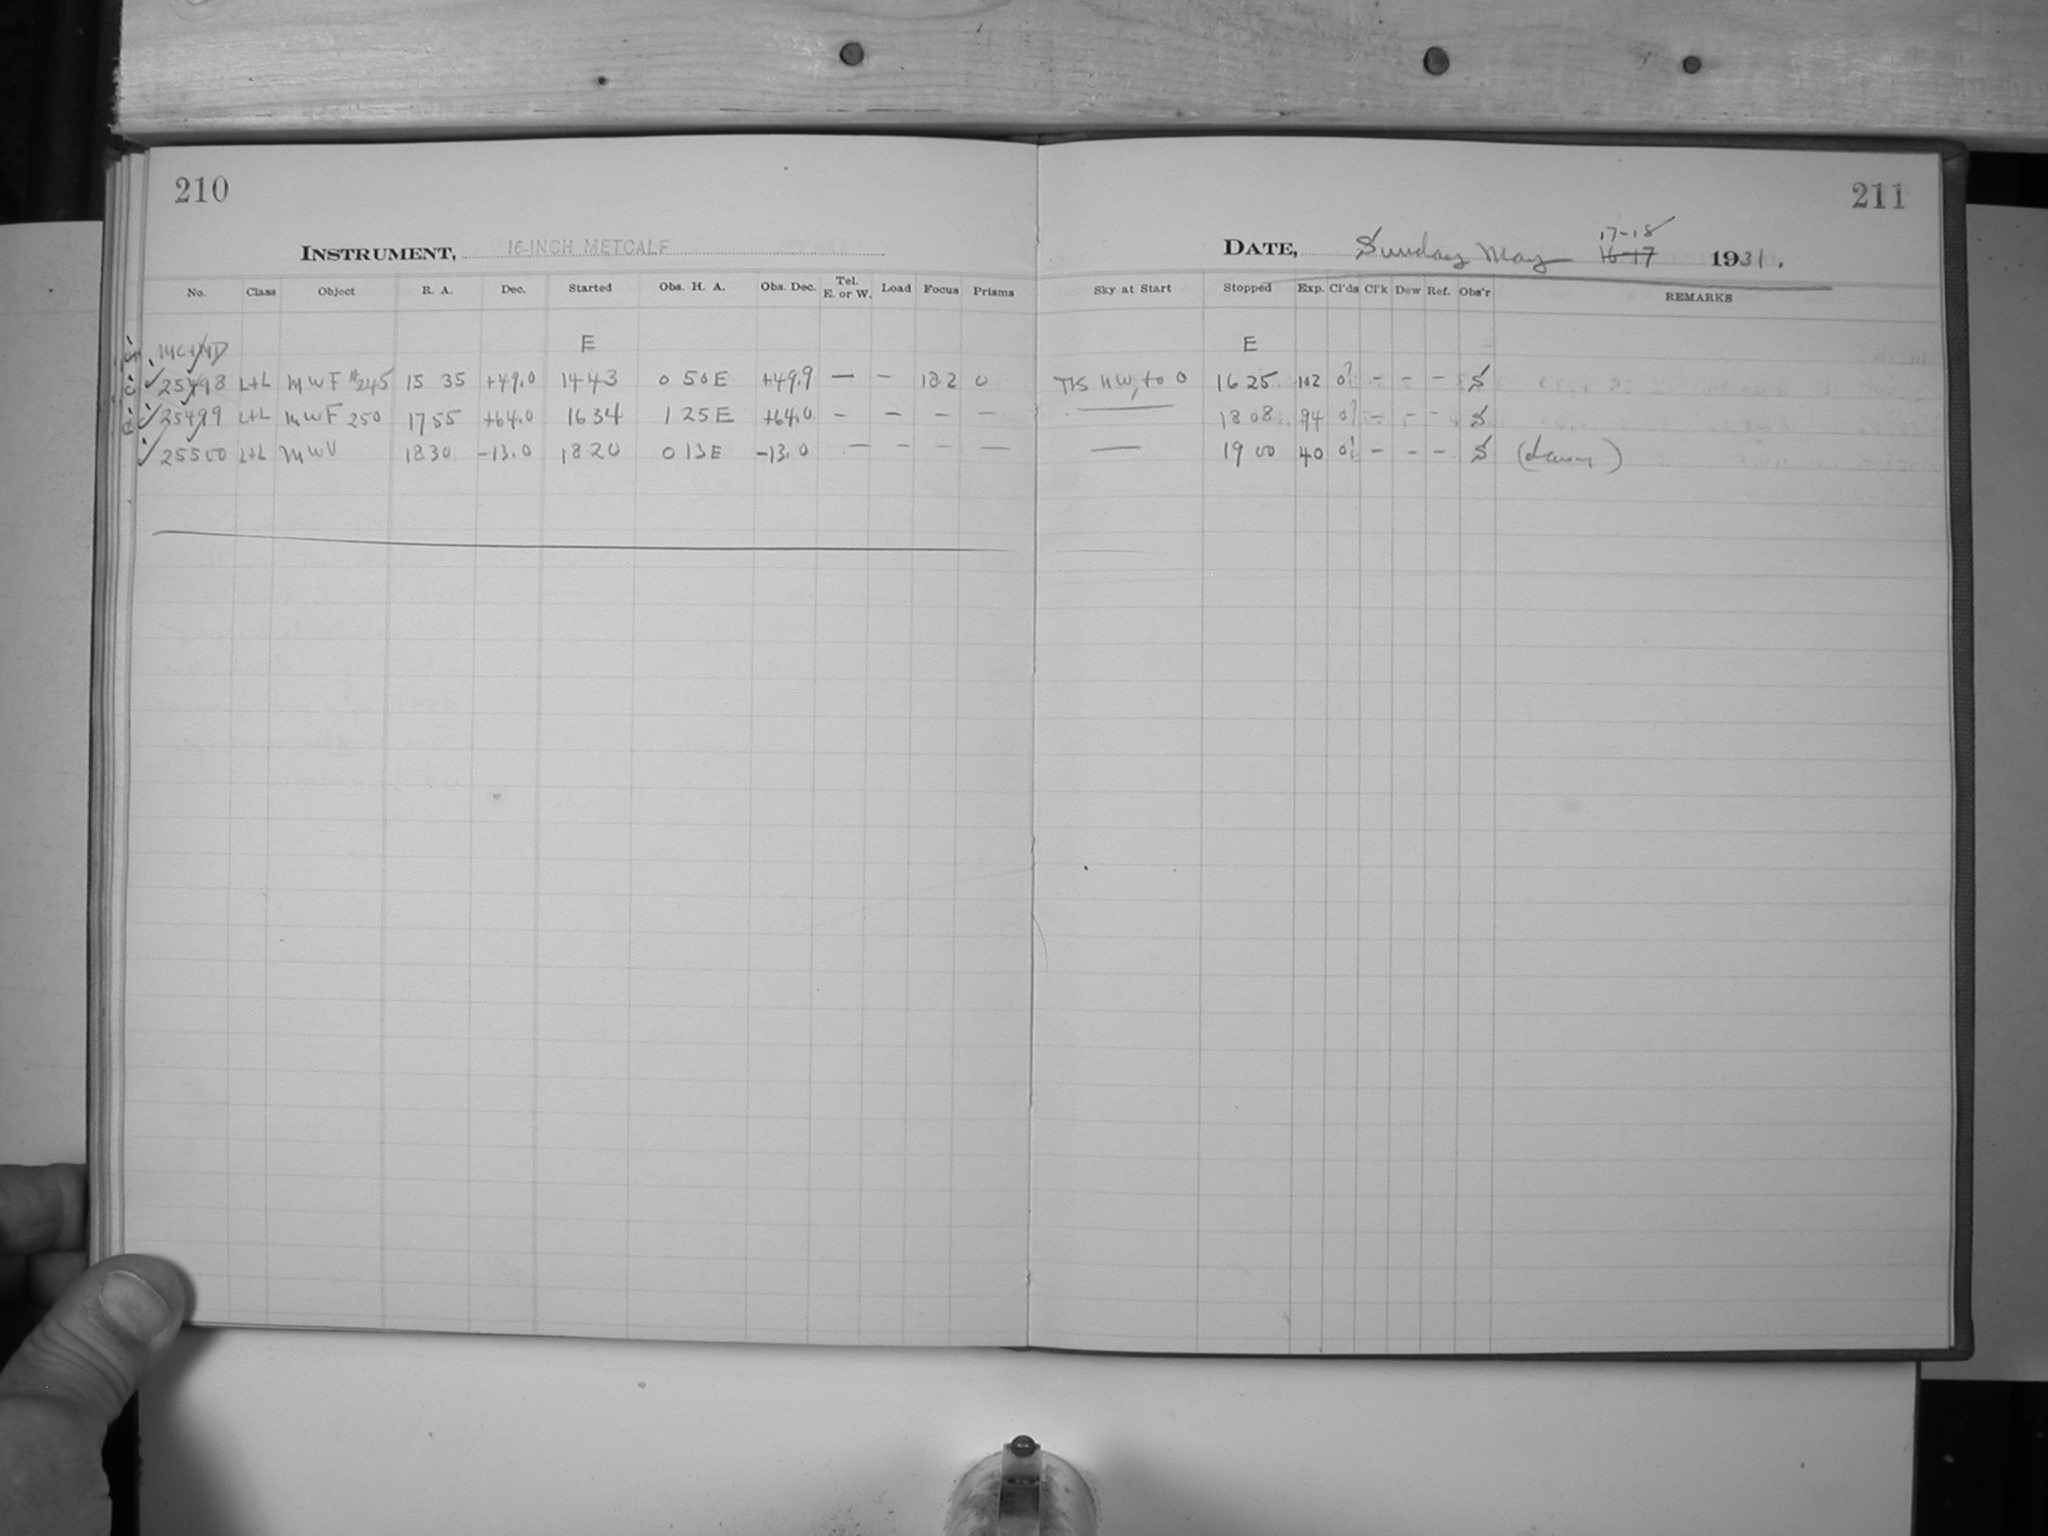 210
211
INSTRUMENT, 16-INCH METCALF
DATE, Sunday May 16-17 17-18 1931.
No. Class Object R. A. Dec. Started Obs. H. A. Obs. Dec. Tel. E. or W. Load Focus Prisms Sky at Start Stopped Exp. Cl'ds Cl'k Dew Ref. Obs'r REMARKS
E E
25498 L+L MWF #245 15 35 +49.0 14 43 0 50 E +49.9 — – 18.2 0 NW, to 0 16 25 102 0? – – – S
25499 L+L MWF 250 17 55 +64.0 16 34 1 25 E +64.0 – – – – — 18 08 94 0? – – – S
25500 L+L MWV 18 30 -13.0 18 20 0 13 E -13.0 — – – — — 19 00 40 0? – – – S (dawn)